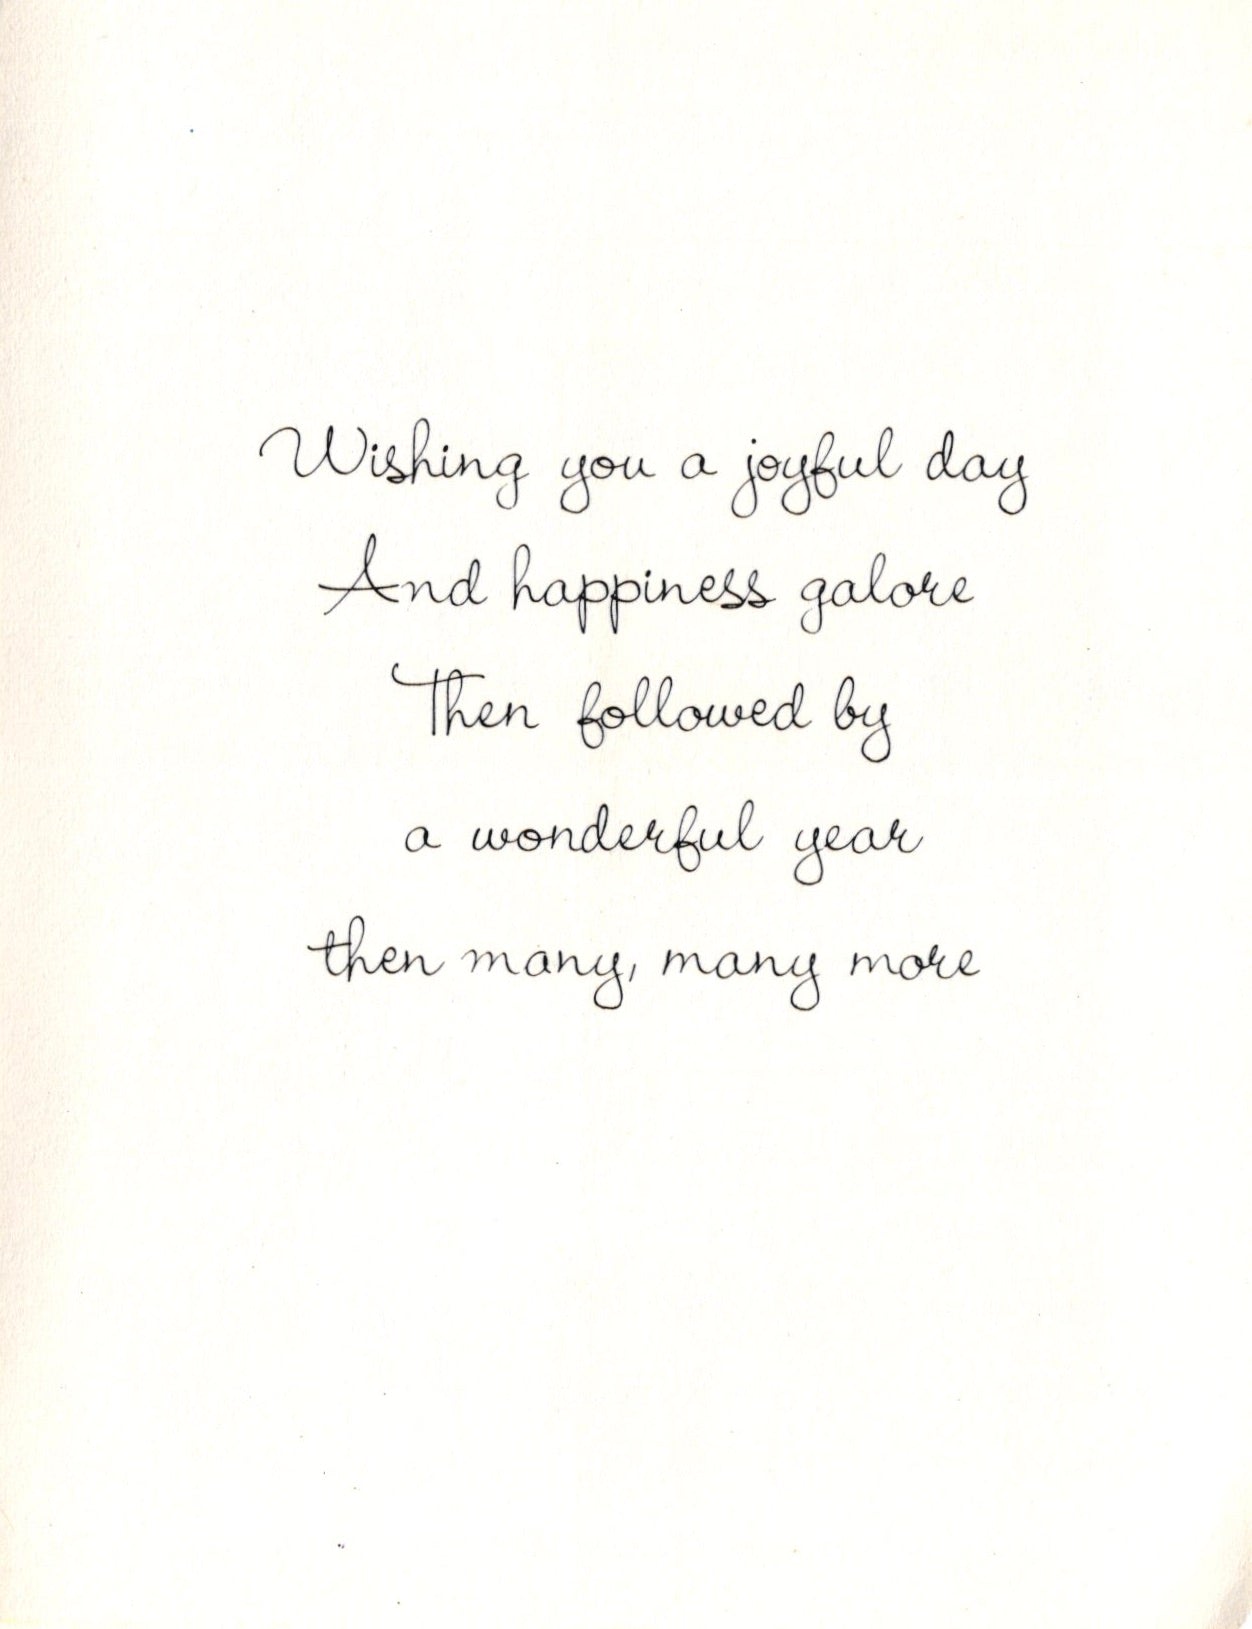 Wishing you a joyful day
And happiness galore
Then followed by
a wonderful year
then many, many more